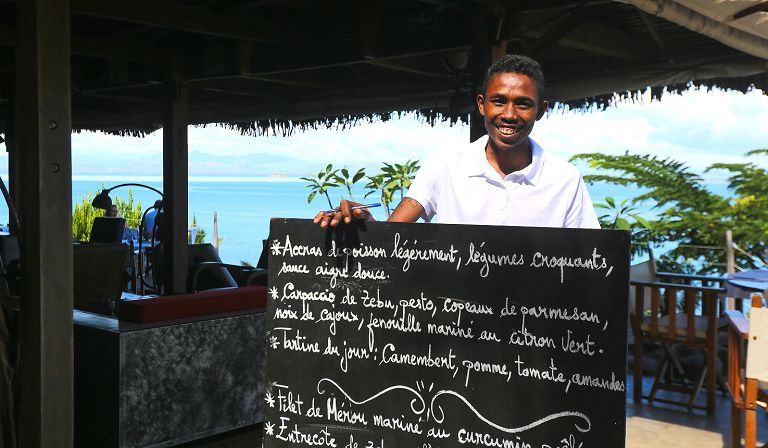 * Accras de poisson légèrement, légumes croquants,
sauce aigre douce.
* Carpaccio de Zébu, pesto, copeaux de parmesan,
noix de cajoux, fenouille mariné au citron vert.
* Tartine du jour : Camembert, pomme, tomate, amandes
* Filet de Mérou mariné au curcumin
* Entrecôte de